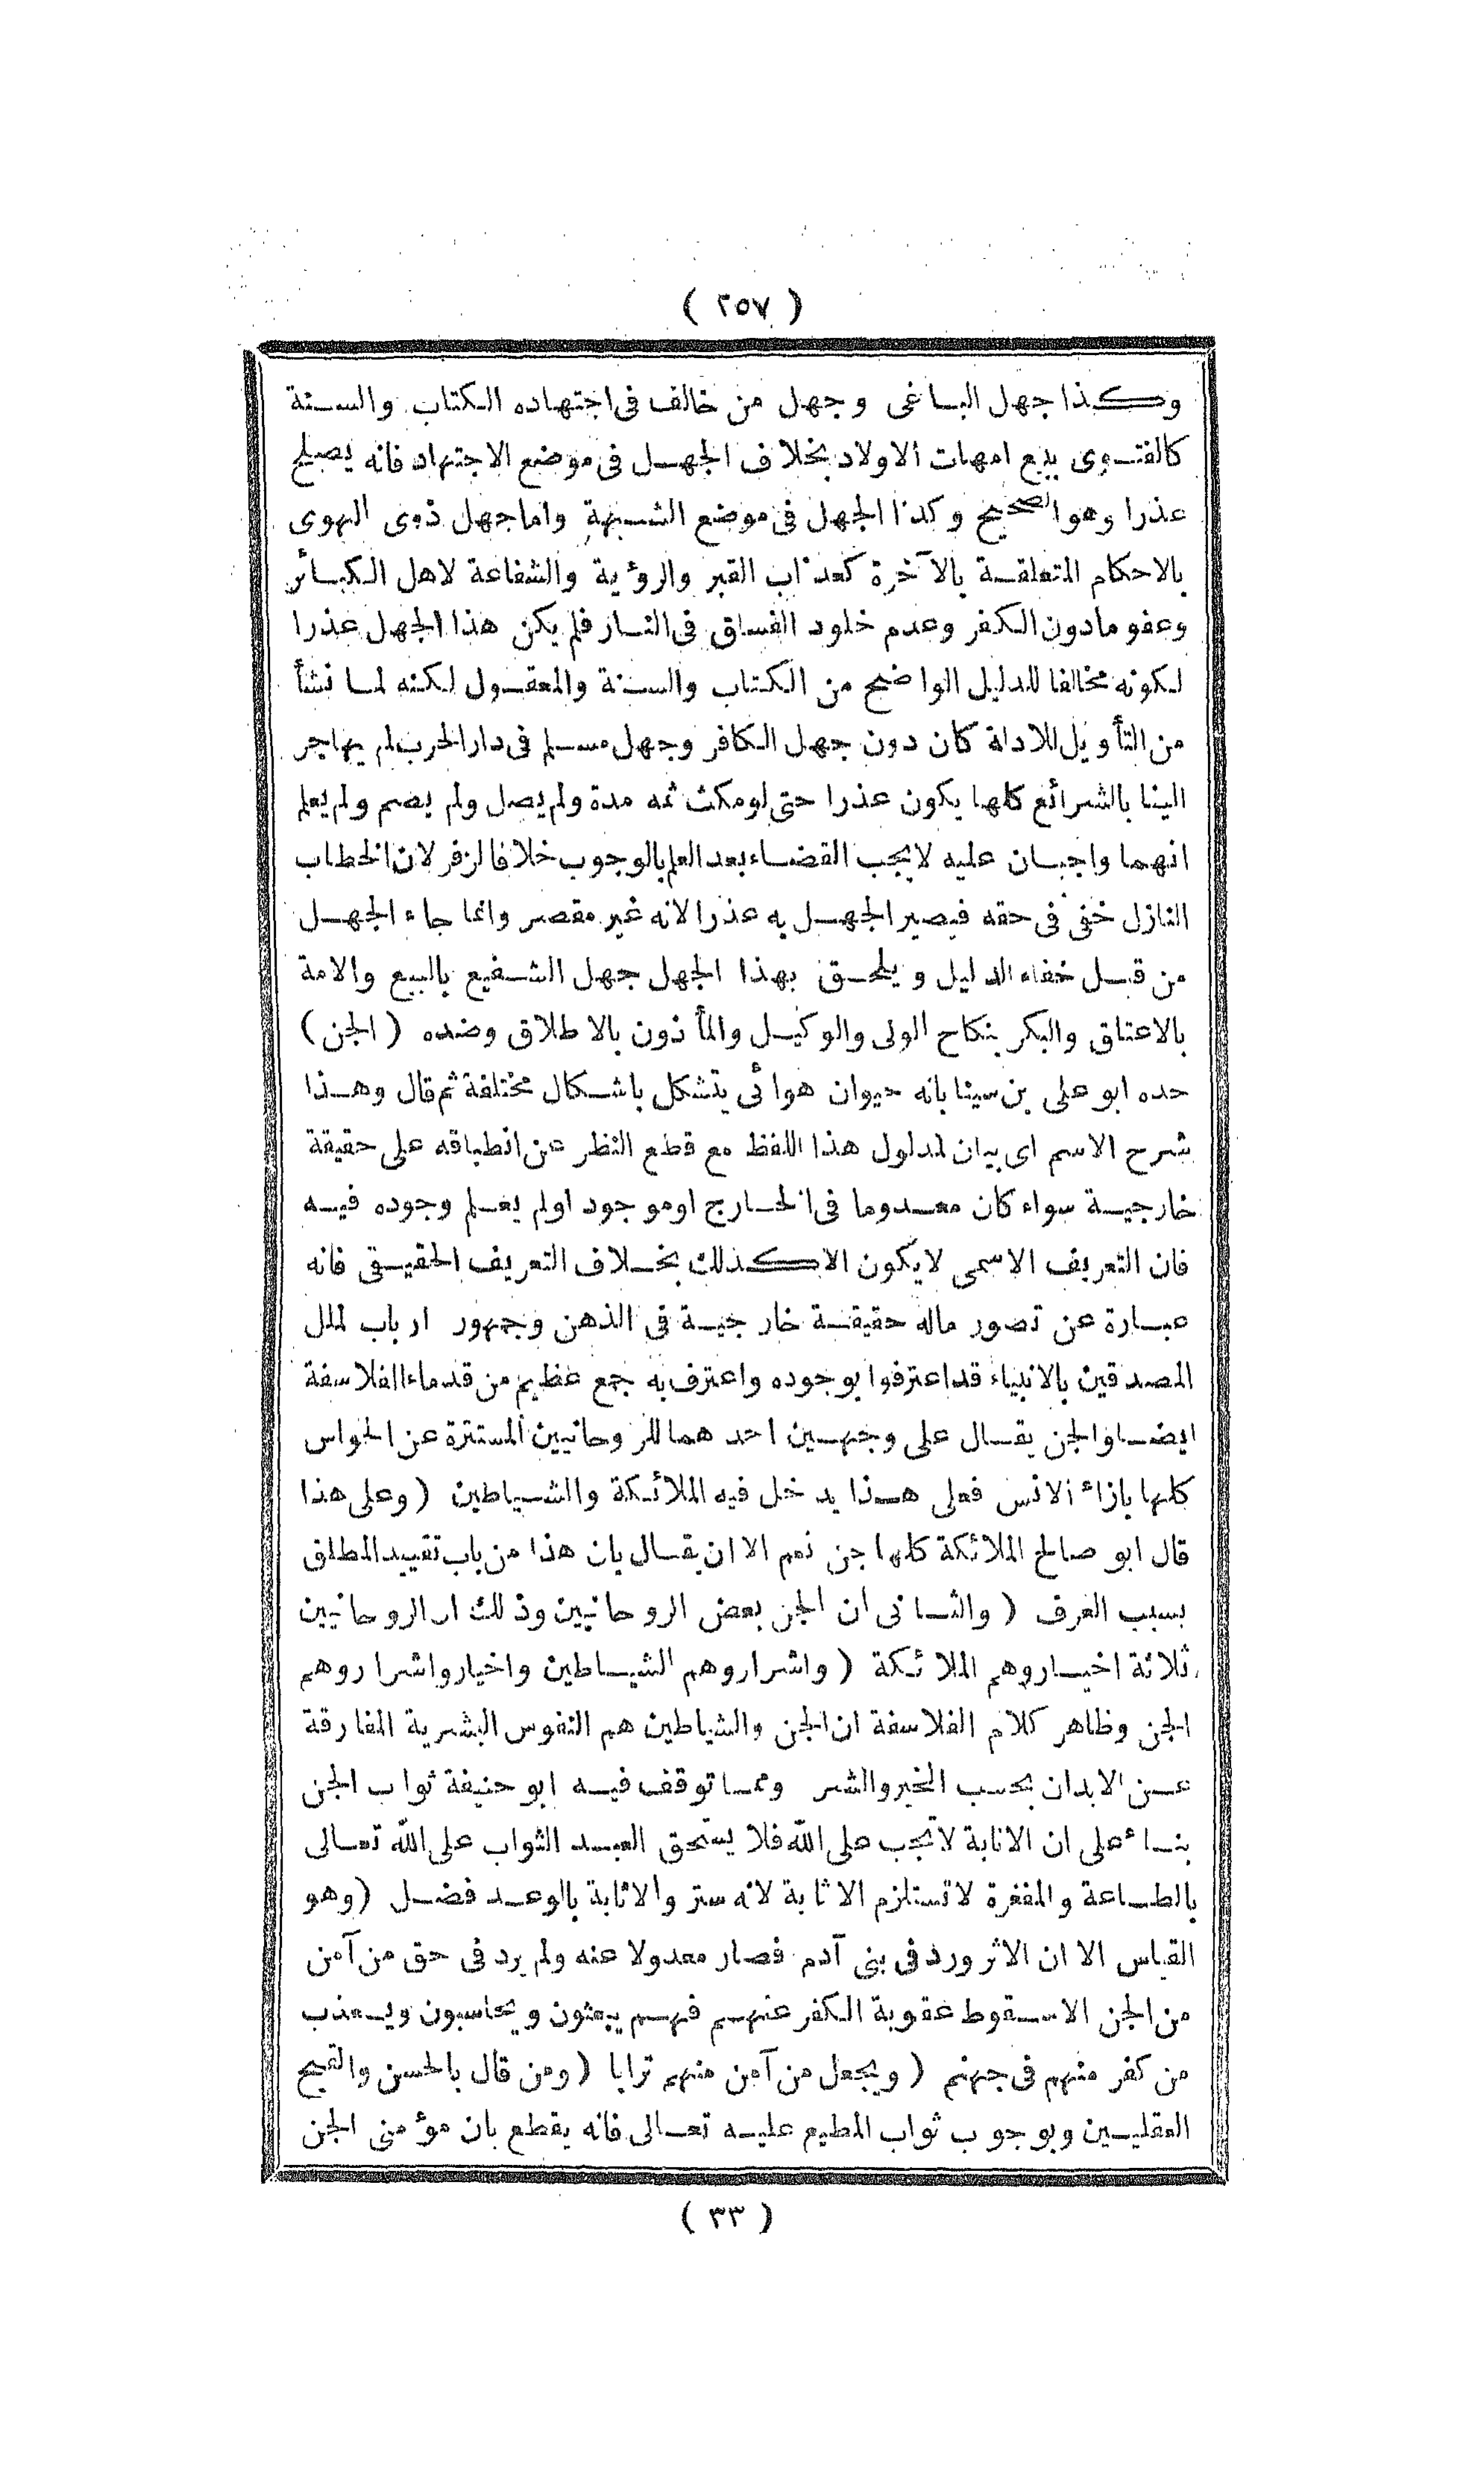 ( ٢٥٧ )
وكذا جهل الباغى وجهل من خالف فى اجتهاده الكتاب والسنة
كالفتوى ببيع امهات الاولاد بخلاف الجهل فى موضع الاجتهاد فانه يصلح
عذرا وهو الصحيح وكذا الجهل فى موضع الشبهة واما جهل ذوى الهوى
بالاحكام المتعلقة بالآخرة كعذاب القبر والرؤية والشفاعة لاهل الكبائر
وعفو مادون الكفر وعدم خلود الفساق فى النار فلم يكن هذا الجهل عذرا
لكونه مخالفا للدليل الواضح من الكتاب والسنة والمعقول لكنه لما نشأ
من التأويل للادلة كان دون جهل الكافر وجهل مسلم فى دار الحرب لم يهاجر
الينا بالشرائع كلها يكون عذرا حتى لو مكث ثمه مدة ولم يصل ولم يصم ولم يعلم
انهما واجبان عليه لا يجب القضاء بعد العلم بالوجوب خلافا لزفر لان الخطاب
النازل خفى فى حقه فيصير الجهل به عذرا لانه غير مقصر وانما جاء الجهل
من قبل خفاء الدليل ويلحق بهذا الجهل جهل الشفيع بالبيع والامة
بالاعتاق والبكر بنكاح الولى والوكيل والمأذون بالاطلاق وضده ( الجن )
حده ابو على بن سينا بانه حيوان هوائى يتشكل باشكال مختلفة ثم قال وهذا
شرح الاسم اى بيان لمدلول هذا اللفظ مع قطع النظر عن انطباقه على حقيقة
خارجية سواء كان معدوما فى الخارج او موجود اولم يعلم وجوده فيه
فان التعريف الاسمى لايكون الاكذلك بخلاف التعريف الحقيقى فانه
عبارة عن تصور ماله حقيقة خارجية فى الذهن وجمهور ارباب لملل
المصدقين بالانبياء قد اعترفوا بوجوده واعترف به جمع عظيم من قدماء الفلاسفة
ايضا والجن يقال على وجهين احدهما للروحانيين المستترة عن الحواس
كلها بازاء الانس فعلى هذا يدخل فيه الملائكة والشياطين ( وعلى هذا
قال ابو صالح الملائكة كلها جن نعم الا ان يقال بان هذا من باب تقييد المطلق
بسبب العرف ( والثانى ان الجن بعض الروحانيين وذلك ان الروحانيين
ثلاثة اخيار وهم الملائكة ( واشرار وهم الشياطين واخيار واشرار وهم
الجن وظاهر كلام الفلاسفة ان الجن والشياطين هم النفوس البشرية المفارقة
عن الابدان بحسب الخير والشر ومما توقف فيه ابو حنيفة ثواب الجن
بناء على ان الاثابة لا تجب على الله فلا يستحق العبد الثواب على الله تعالى
بالطاعة والمغفرة لا تستلزم الاثابة لانه ستر والاثابة بالوعد فضل ( وهو
القياس الا ان الاثر ورد فى بنى آدم فصار معدولا عنه ولم يرد فى حق من آمن
من الجن الا سقوط عقوبة الكفر عنهم فهم يبعثون ويحاسبون ويعذب
من كفر منهم فى جهنم ( ويجعل من آمن منهم ترابا ( ومن قال بالحسن والقبح
العقليين وبوجوب ثواب المطيع عليه تعالى فانه يقطع بان مؤمنى الجن
( ٣٣ )